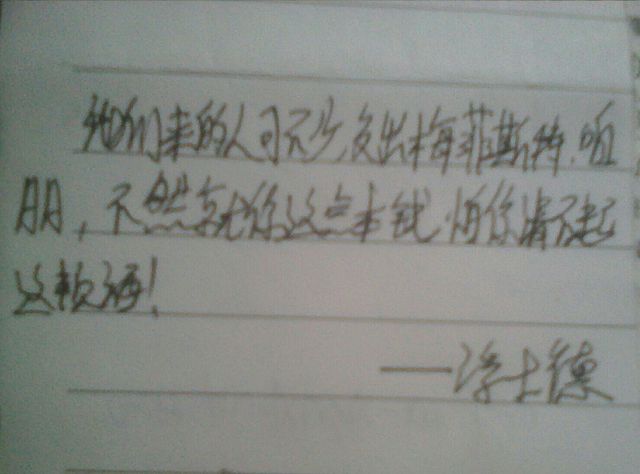 他们来的人可不少,交出梅菲斯特.咱
朋,不然就你这点本钱,怕你请不起
这顿酒!
——浮士德